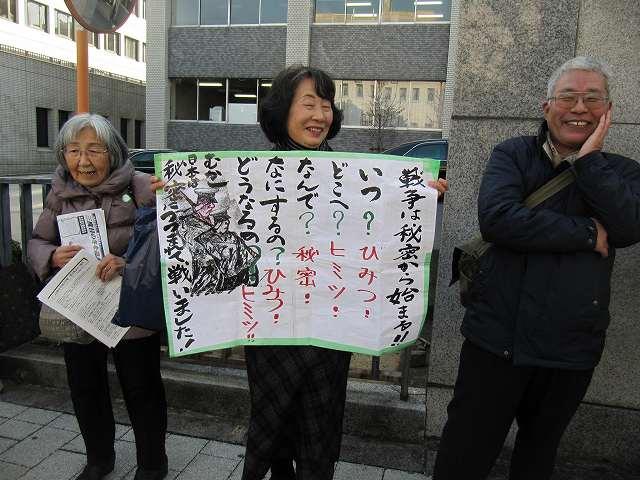 戦争は秘密から始まる!!
いつ?ひみつ!
どこへ?ヒミツ!
なんで?秘密!
なにするの?ひみつ!
どうなるの?ヒミツ!!
むかし
日本は
秘密のまゝ戦いました!